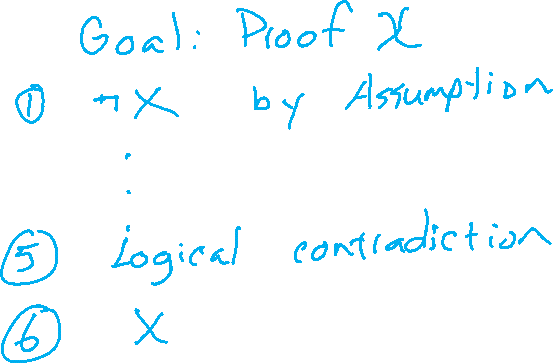 Goal: Proof X
① ¬X by Assumption
:
⑤ Logical contradiction
⑥ X